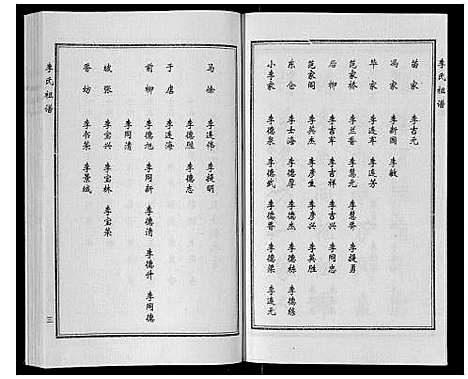 李氏祖谱
苗家 李吉元
冯家 李新国 李敏
毕家 李连军 李连芳
范家桥 李兰香 李慧元 李慧安 李提勇
后柳 李吉军 李吉祥 李振兴 李同忠
范家阁 李英杰 李彦生 李彦兴 李英胜
东仓 李士海 李德厚 李德杰 李德栋 李德路
小李家 李德泉 李德武 李德晋 李德梁 李连元
马徐 李连伟 李提明
李德胜 李德志
于唐 李连海
前柳 李德旭 李同新 李德清 李德升 李同德
李同清
城张 李宝兴 李宝林 李宝荣
香坊 李书荣 李景城
李氏祖谱
三